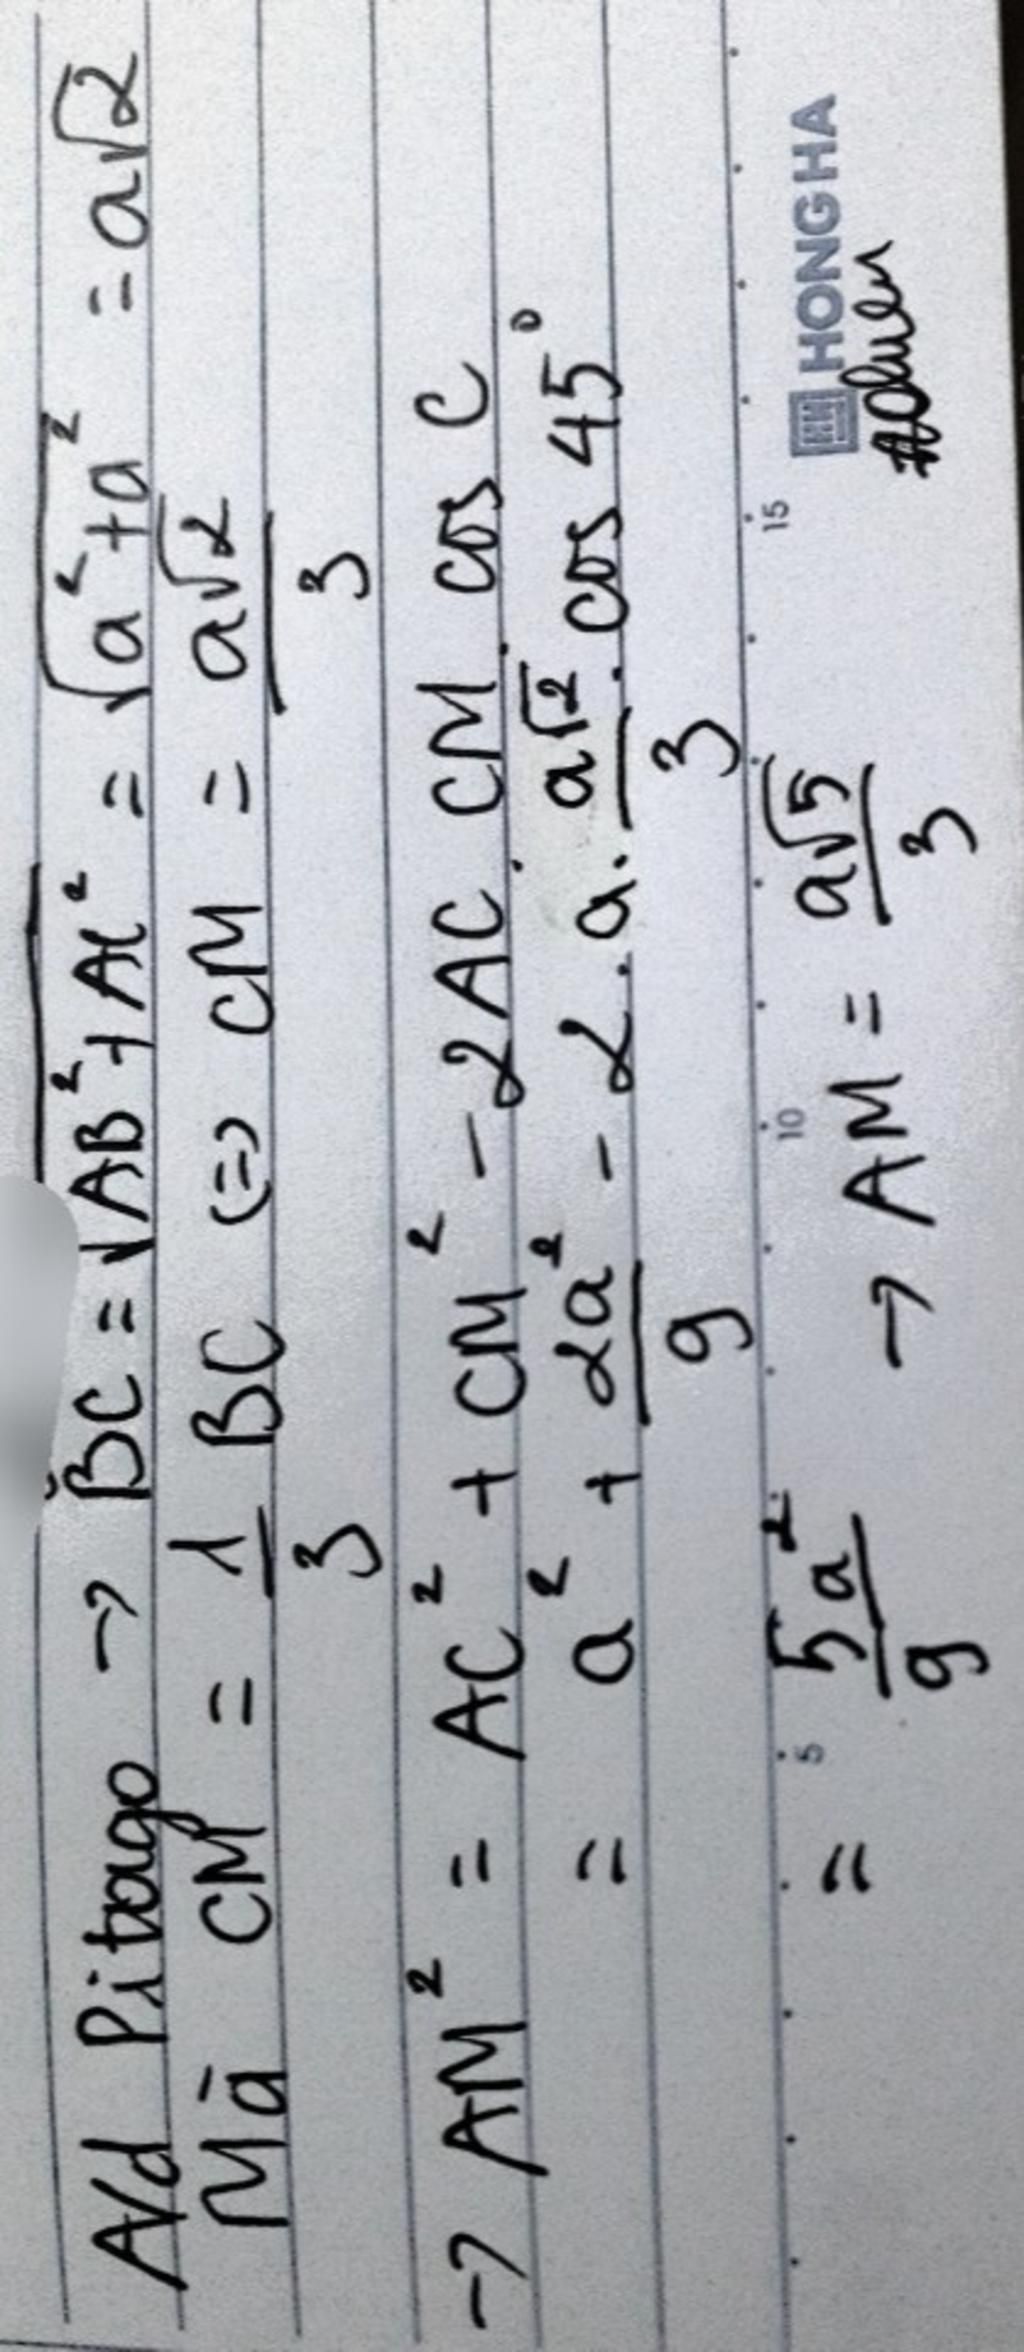 A/d Pitago → BC = √AB² + AC² = √a² + a² = a√2
Mà CM = 1/3 BC (=) CM = a√2/3
→ AM² = AC² + CM² - 2AC . CM . cos C
= a² + 2a²/9 - 2 . a . a√2/3 . cos 45°
= 5a²/9 → AM = a√5/3
5 10 15
HONGHA